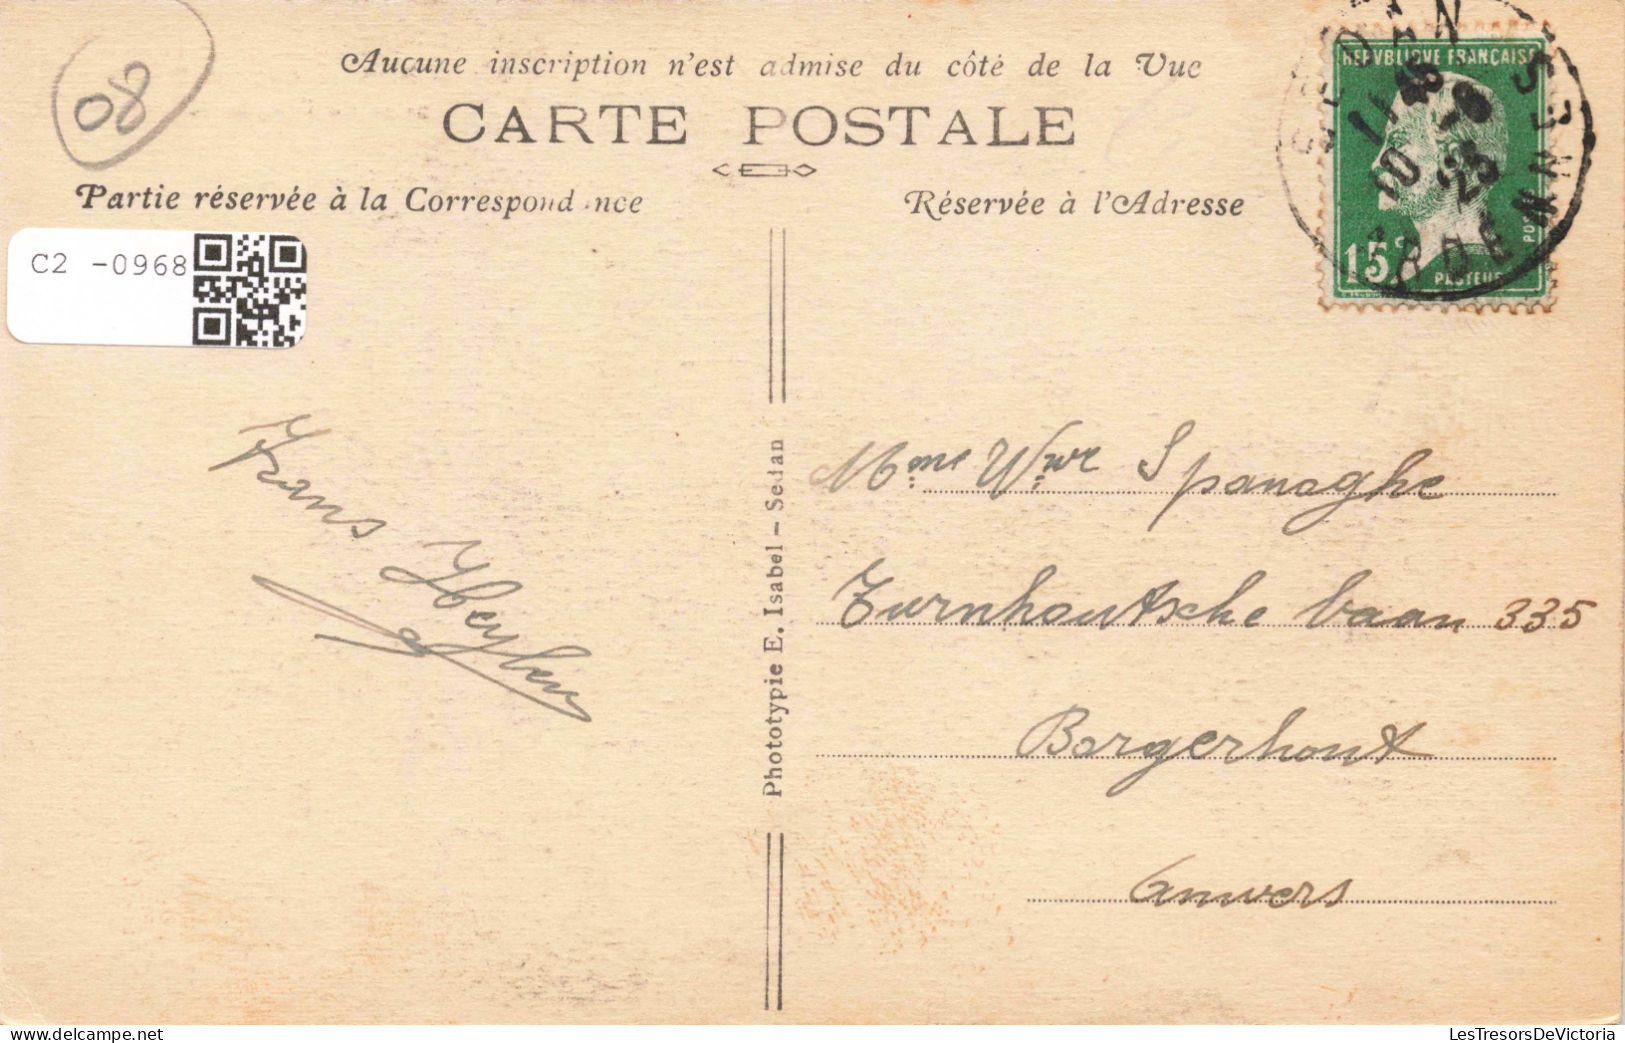 08
Aucune inscription n'est admise du côté de la Vue
CARTE POSTALE
Partie réservée à la Correspondance
Réservée à l'Adresse
C2 -0968
REPVBLIQVE FRANÇAISE
15c
PASTEUR
SEDAN
ARDENNES
11 45
10 -8
25
Frans
Phototypie E. Isabel - Sedan
Mme Wwe Spanoghe
Turnhoutsche baan 335
Borgerhout
Anvers
LesTresorsDeVictoria